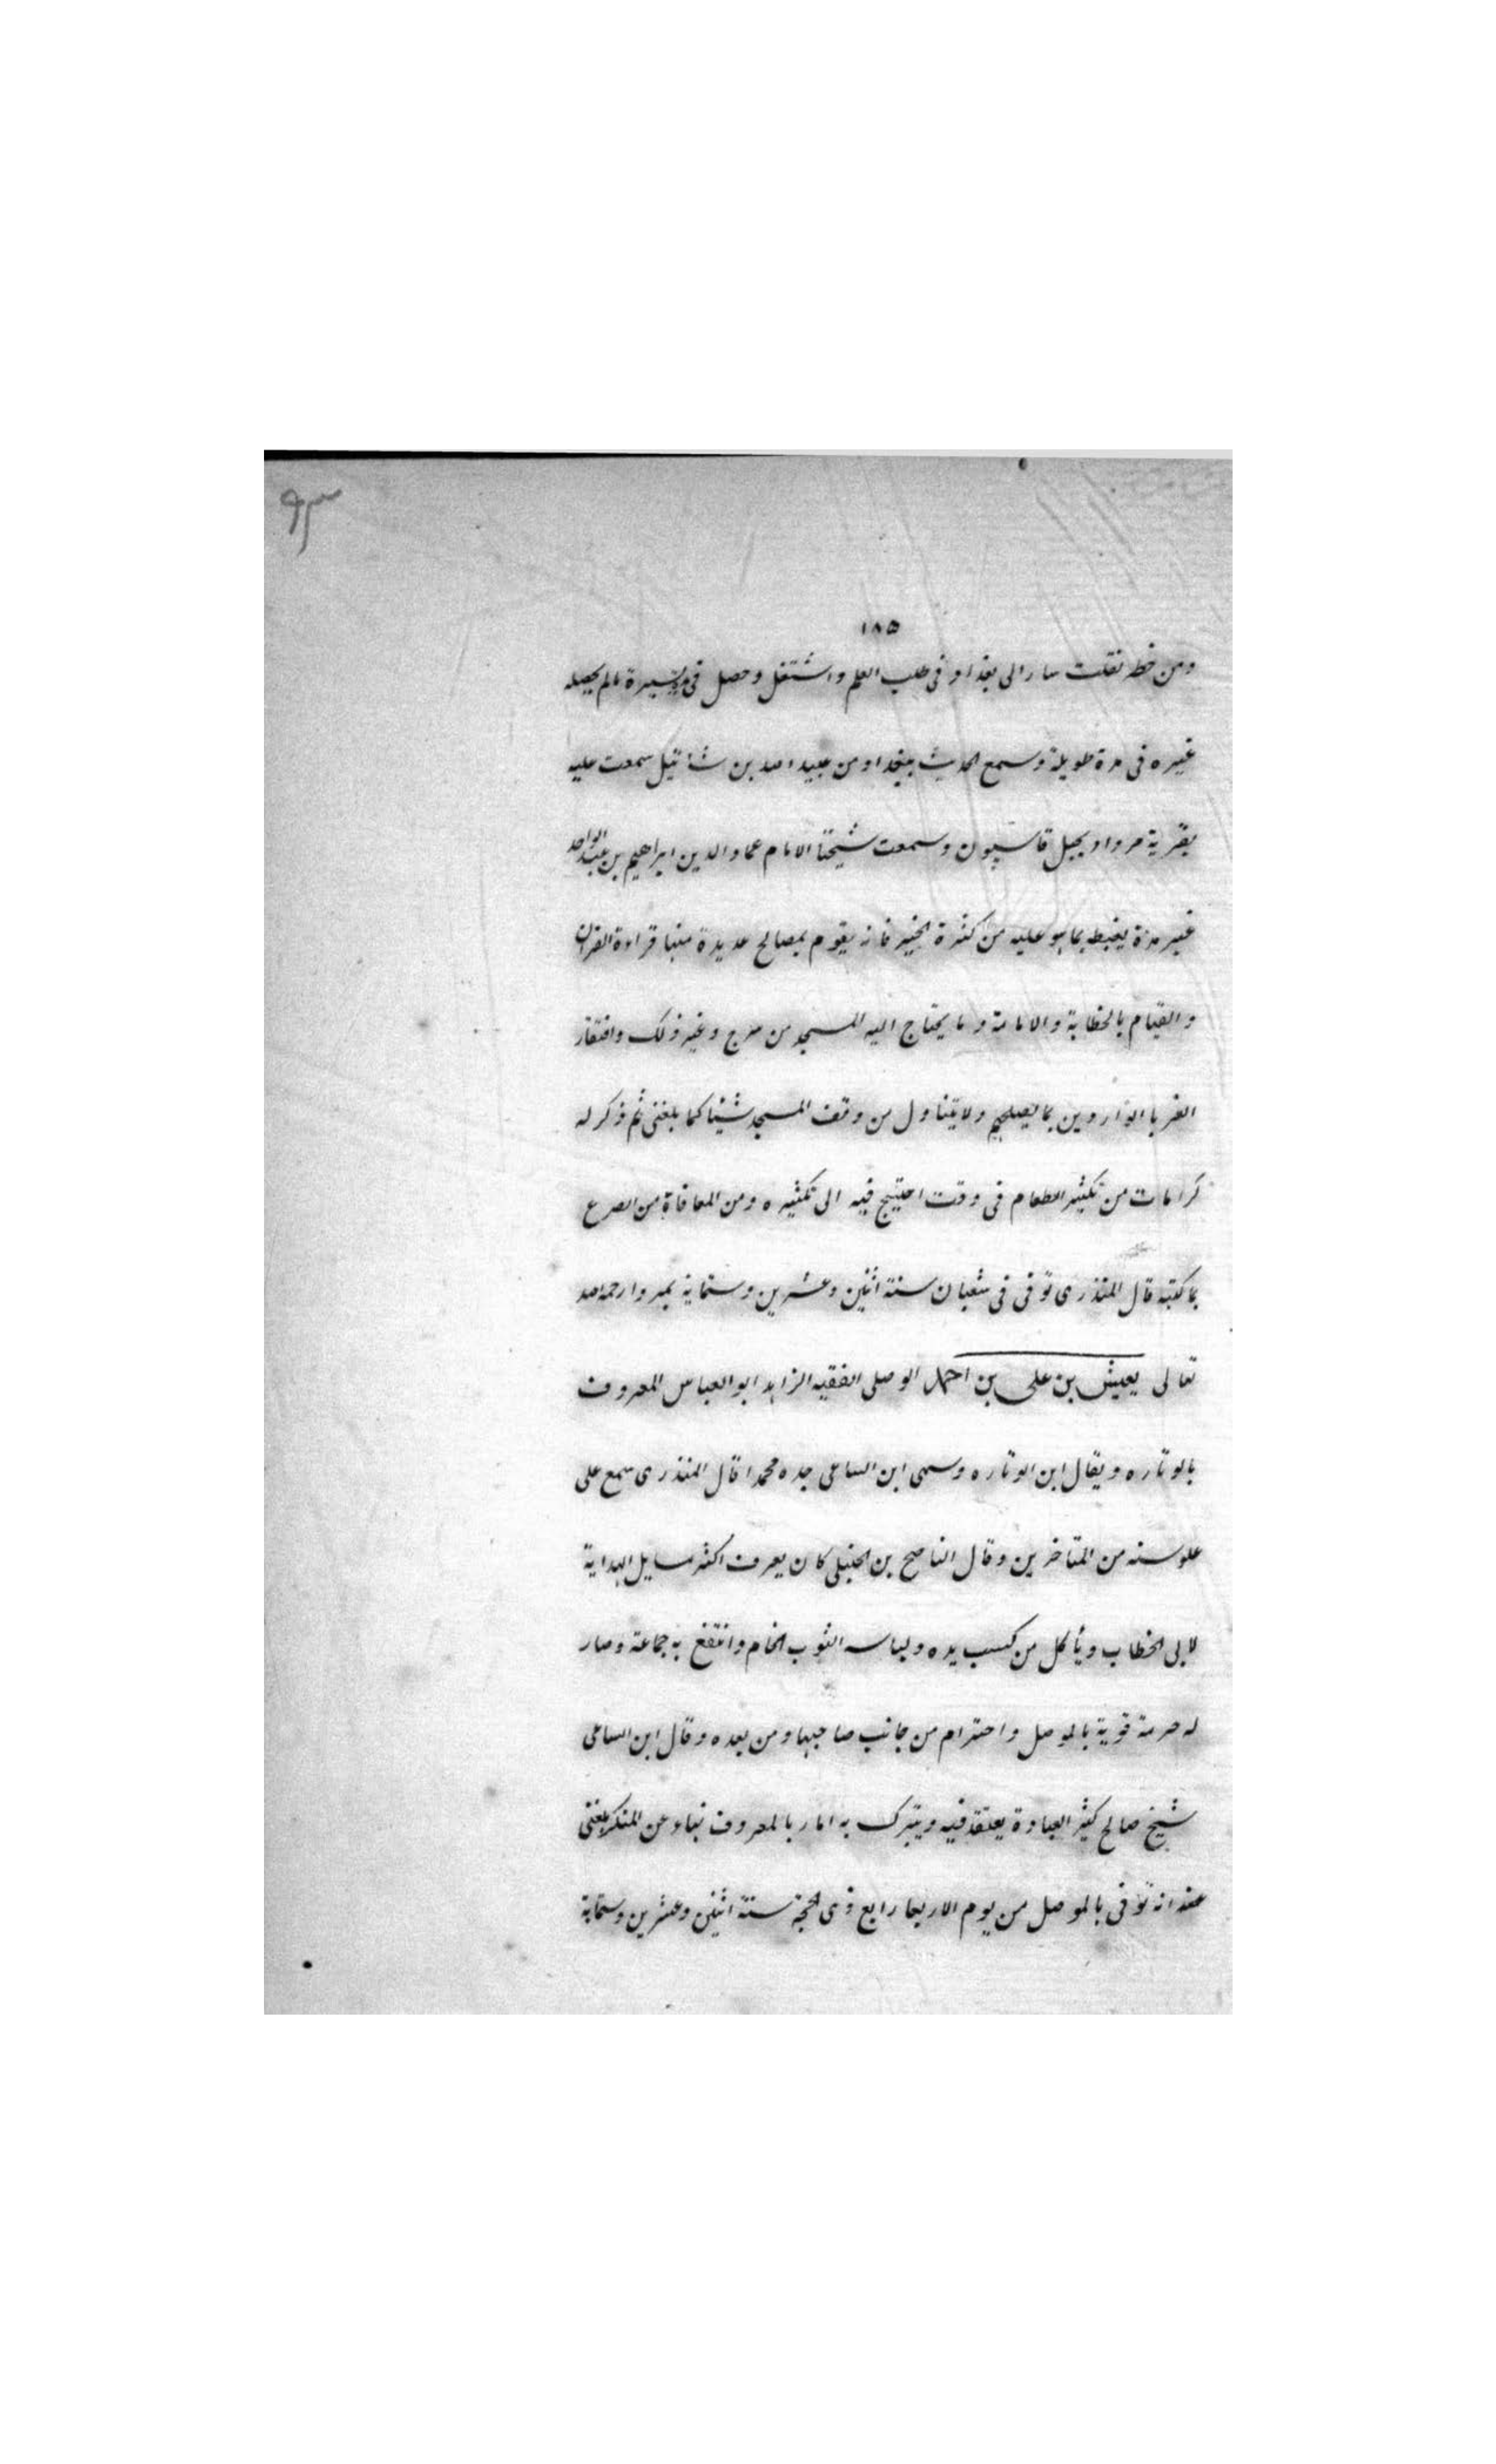 ٩٣
١٨٥
ومن خطه نقلت سار الى بغداد فى طلب العلم واشتغل وحصل فى مدة يسيرة مالم يحصله
غيره فى مدة طويلة وسمع الحديث ببغداد من عبيد الله بن شاتيل سمعت عليه
بقرية مردا و بجبل قاسيون وسمعت شيخنا الامام عماد الدين ابراهيم بن عبد الواحد
غير مرة يغبطه بما هو عليه من كثرة الخير فانه يقوم بمصالح عديدة منها قراءة القران
والقيام بالخطابة والامامة وما يحتاج اليه المسجد من سرج وغير ذلك وافتقار
الغربا الواردين بما يصلحهم ولا يتناول من وقف المسجد شيئا كما بلغنى ثم ذكر له
كرامات من تكثير الطعام فى وقت احتيج فيه الى تكثيره ومن المعافاة من الصرع
بما كتبه قال المنذرى توفى فى شعبان سنة اثنين وعشرين وستماية بمردا رحمه الله
تعالى يعيش بن على بن احمد الوصلى الفقيه الزاهد ابو العباس المعروف
بالوتاره ويقال ابن الوتاره وسمى ابن الساعى جده محمدا قال المنذرى سمع على
علوسنه من المتاخرين وقال الناصح بن الحنبلى كان يعرف اكثر مسايل الهداية
لابى الخطاب وياكل من كسب يده ولباسه الثوب الخام وانتفع به جماعة وصار
له حرمة قوية بالموصل واحترام من جانب صاحبها ومن بعده وقال ابن الساعى
شيخ صالح كثير العبادة يعتقد فيه ويتبرك به امار بالمعروف نهاء عن المنكر بلغنى
عنه انه توفى بالموصل من يوم الاربعا رابع ذى الحجة سنة اثنين وعشرين وستماية